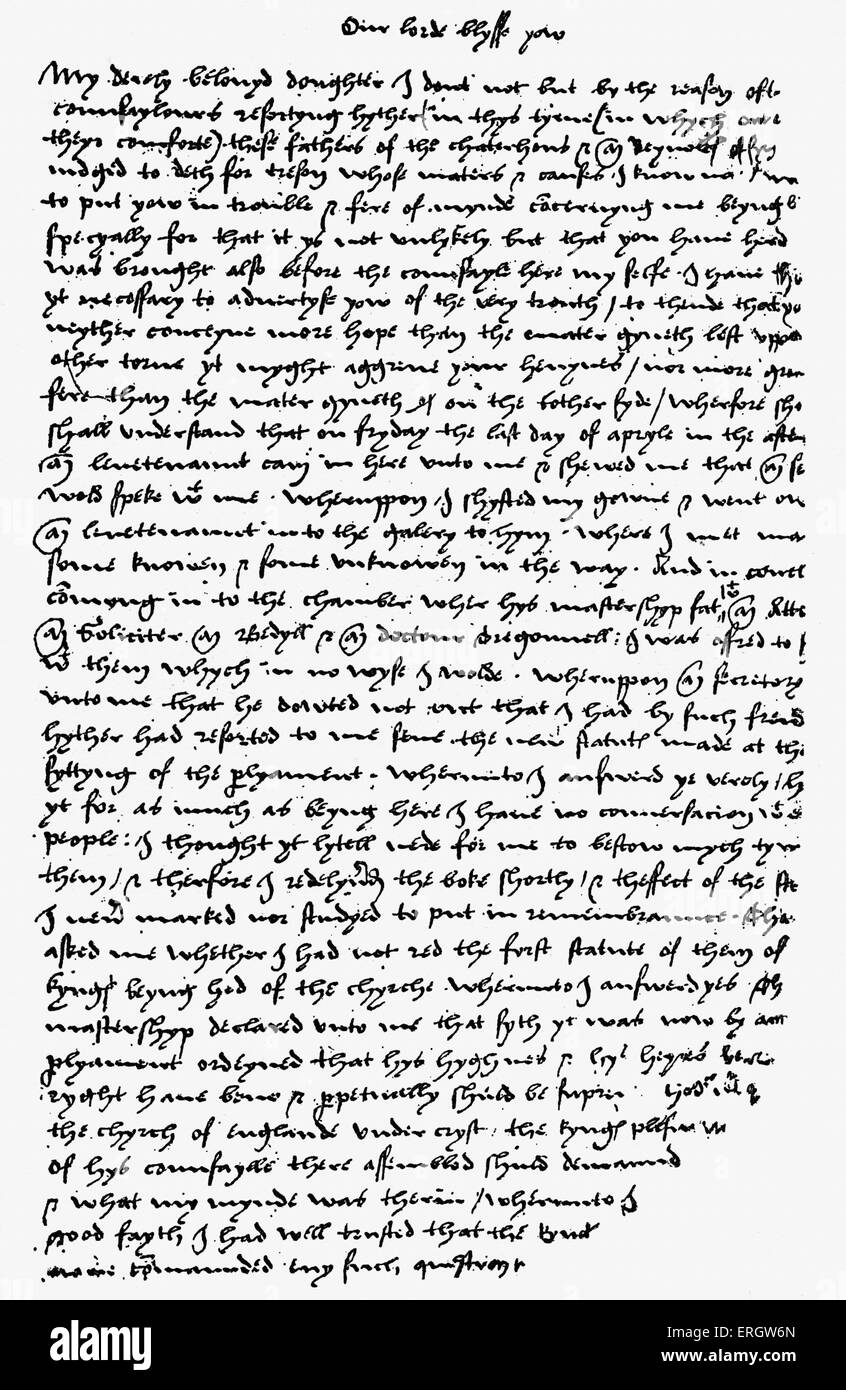 Our lorde blysse yow
My derely belovyd doughter I dout not but by the reason of
counsaylours resortyng hyther in thys tyme (in whych
theyr comforte) these fathers of the chaterhous & Reynolds
judged to deth for treson whose maters & causes I know not
to put yow in trouble & fere of mynde concernyng me beyng
specyally for that it ys not unlykely but that you have herd
was brought also before the counsayle here my selfe I have
yt necessary to advertyse yow of the very trouth / to thende that yo
neyther conceyve more hope than the mater gyveth lest uppon
other torne yt myght aggreve your hevynes / nor more gre
fere than the mater gyveth of on the tother syde / wherfore sho
shall understand that on fryday the last day of apryle in the after
levetenaunt cam in here unto me & shewed me that
wold speke wt me . wheruppon I shyfted my gowne & went ow
levetenaunt into the galery to hym . where I met ma
some knowen & some unknowen in the way . And in
comyng in to the chamber wher hys mastershyp sat wt Atto
Soliciter Bedyll & doctour Tregonnell : I was offred to
wt them whych in no wyse I wolde . wheruppon secretory
unto me that he dowted not but that I had by such frend
hyther had resorted to me sene the new statuts made at the
syttyng of the plyament . wherunto I answerd ye verely / h
yt for as much as beyng here I have no conversacion wt
people : I thought yt lytell nede for me to bestow mych tym
them / & therfore I redelyverd the boke shortly / & theffect of the sta
I never marked nor studyed to put in remembraunce . Tha
asked me whether I had not red the forst statute of them of
Kyngs beyng hed of the chyrche wherunto I answerd yes
mastershyp declared unto me that syth yt was now by act
plyament ordeyned that hys hyghnes & hys heyres
ryght have bene & perpetually shuld be supre
the chyrch of Englande under cryst . the kyngs plesur
of hys counsayle there assembled shuld demaund
& what my mynde was therin / wherunto I
good fayth I had well trusted that the
commaunded eny such question
alamy
Image ID: ERGW6N
www.alamy.com